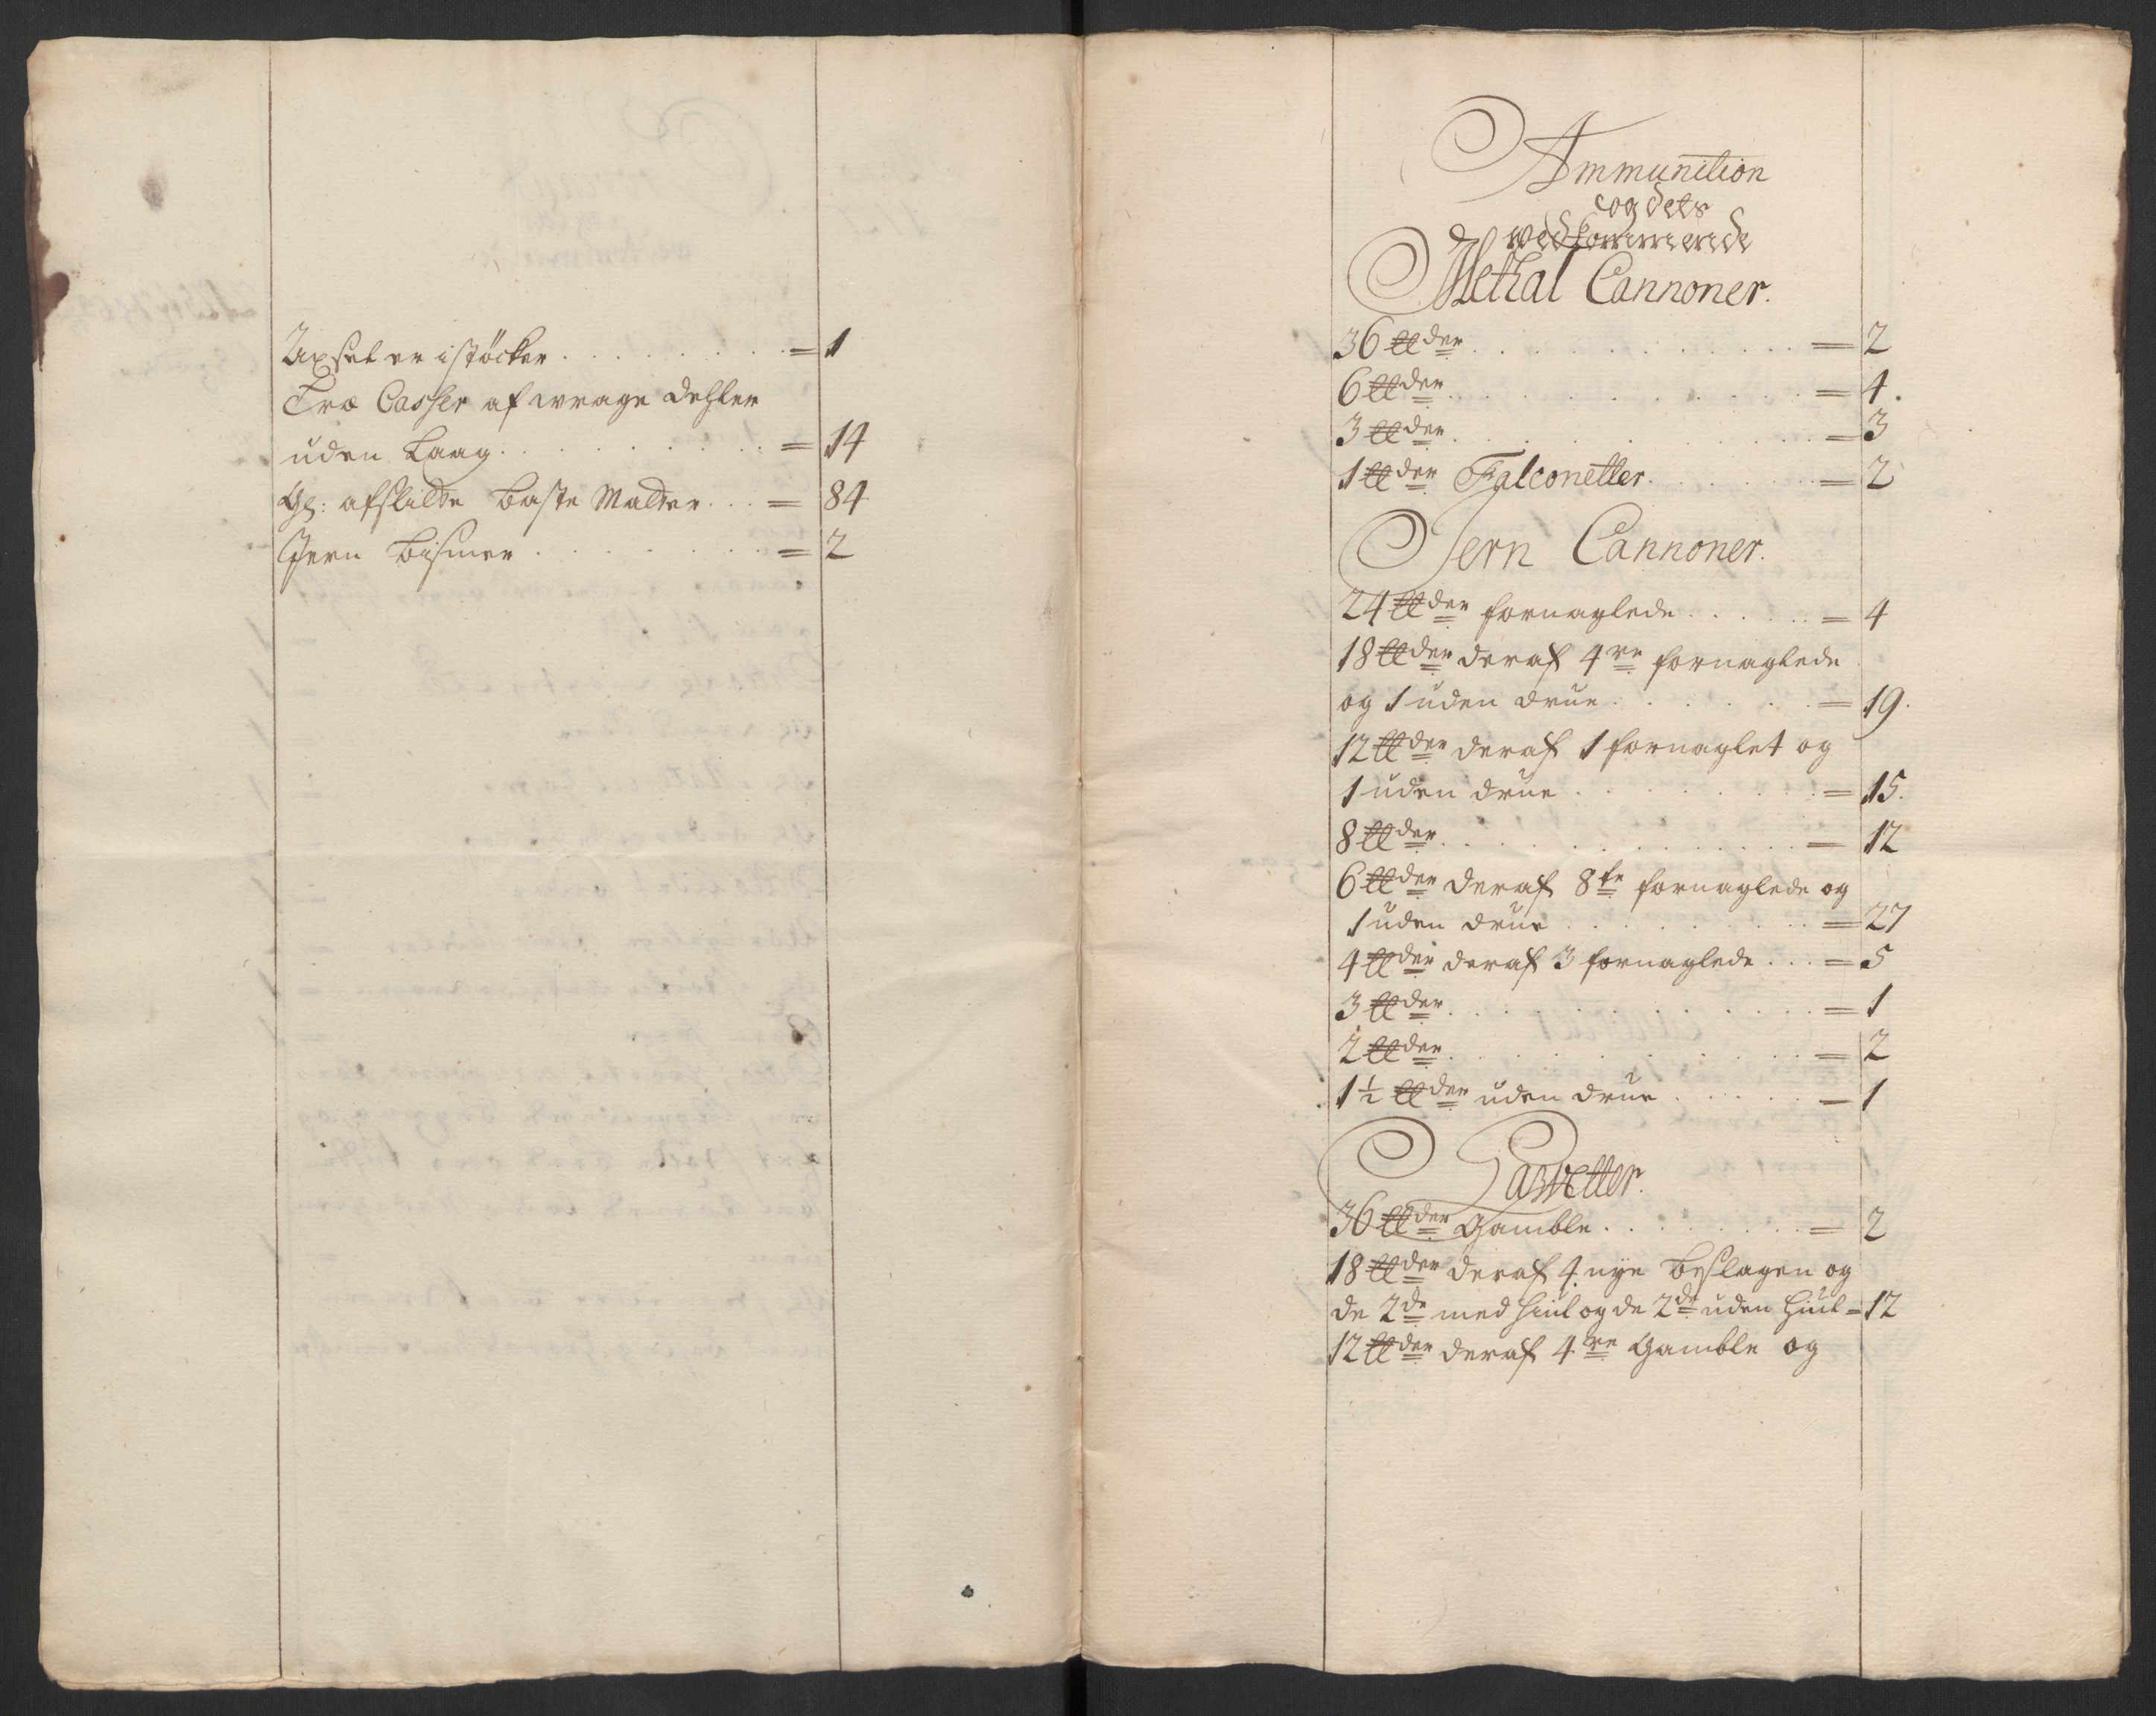 Uxsel er i støcker . . . . . . . = 1
Træ Casser af wrage dehler
uden Laag . . . . . . . = 14
Gl: afslidte Baste Matter . . . = 84
Jern Bismer . . . . . . . = 2
Ammunition
og dets
vedkommende
Methal Cannoner.
36 ℔der . . . . . . . = 2
6 ℔der . . . . . . . = 4.
3 ℔der . . . . . . . = 3
1 ℔der Falconetter . . . . . = 2
Jern Cannoner.
24 ℔der fornaglede . . . . . = 4
18 ℔der deraf 4re fornaglede
og 1 uden drue . . . . . = 19.
12 ℔der deraf 1 fornaglet og
1 uden drue . . . . . . = 15.
8 ℔der . . . . . . . = 12
6 ℔der deraf 8te fornaglede og
1 uden drue . . . . . . = 27
4 ℔der deraf 3 fornaglede . . . = 5
3 ℔der . . . . . . . = 1
2 ℔der . . . . . . . = 2
1½ ℔der uden drue . . . . . = 1
Lavetter.
36 ℔der Gamble . . . . . = 2
18 ℔der deraf 4 nye beslagen og
de 2de med hiul og de 2de uden hiul = 12
12 ℔der deraf 4re Gamble og